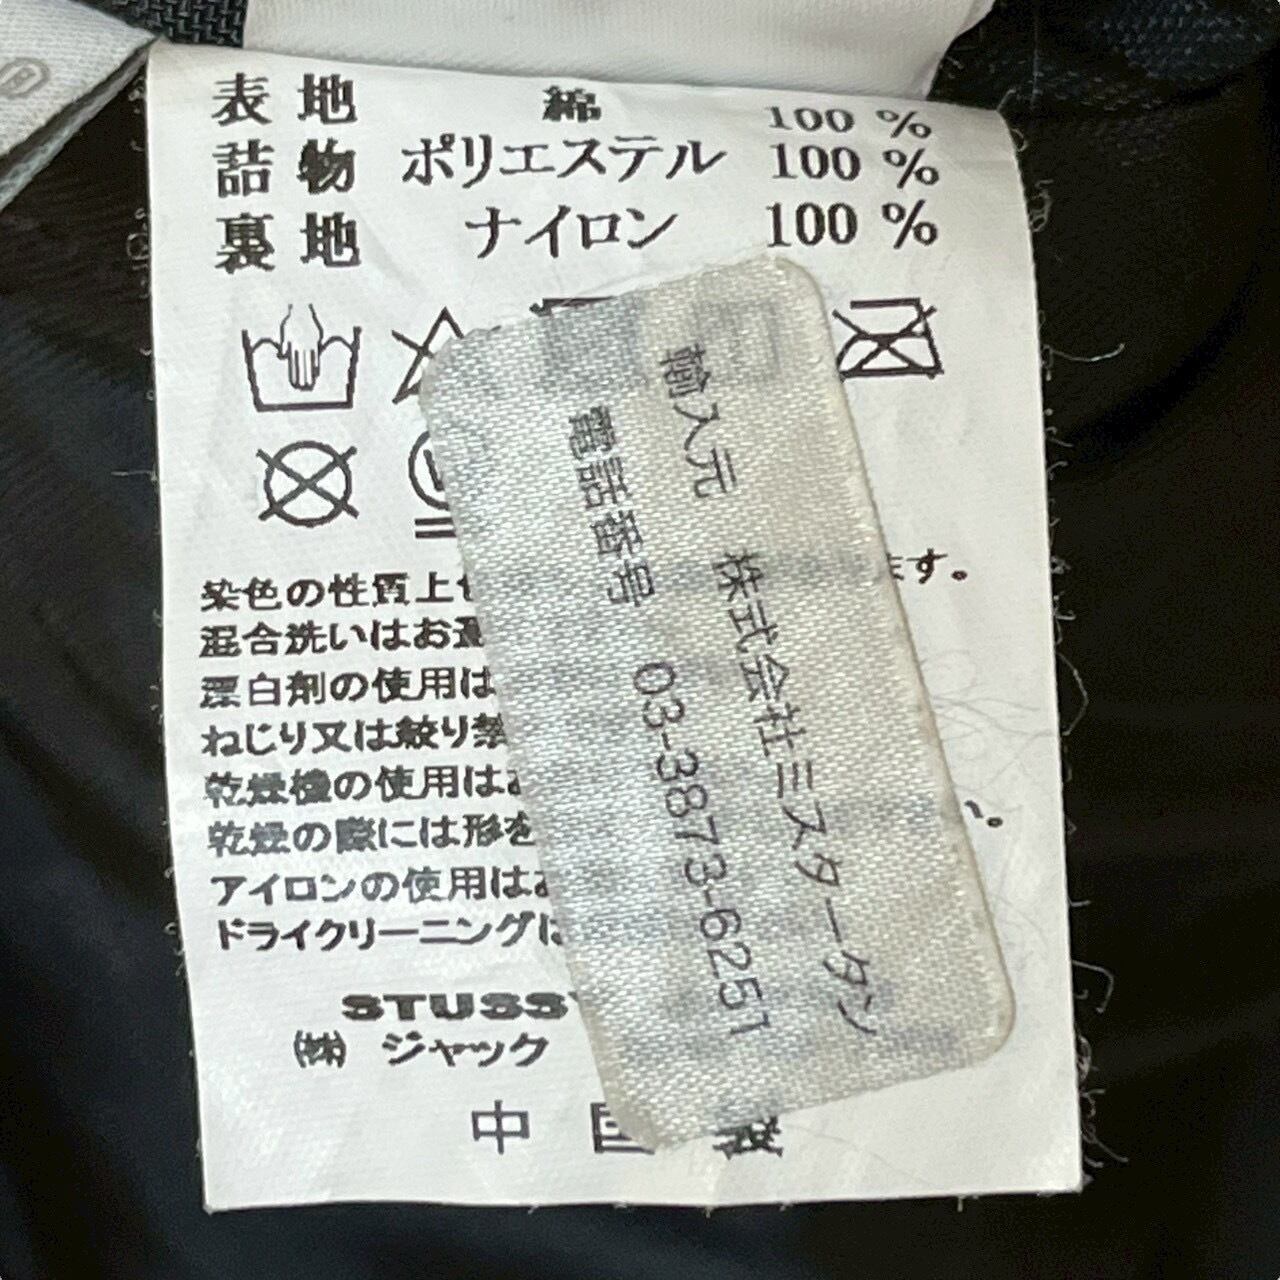 表地 綿 100 %
詰物 ポリエステル 100 %
裏地 ナイロン 100 %
染色の性質上
ます。
混合洗いはお
漂白剤の使用は
ねじり又は絞り禁
乾燥機の使用はお
乾燥の際には形を
い。
アイロンの使用はお
ドライクリーニングは
STUSSY
㈱ ジャック
中国製
輸入元 株式会社ミスタータン
電話番号 03-3873-6251